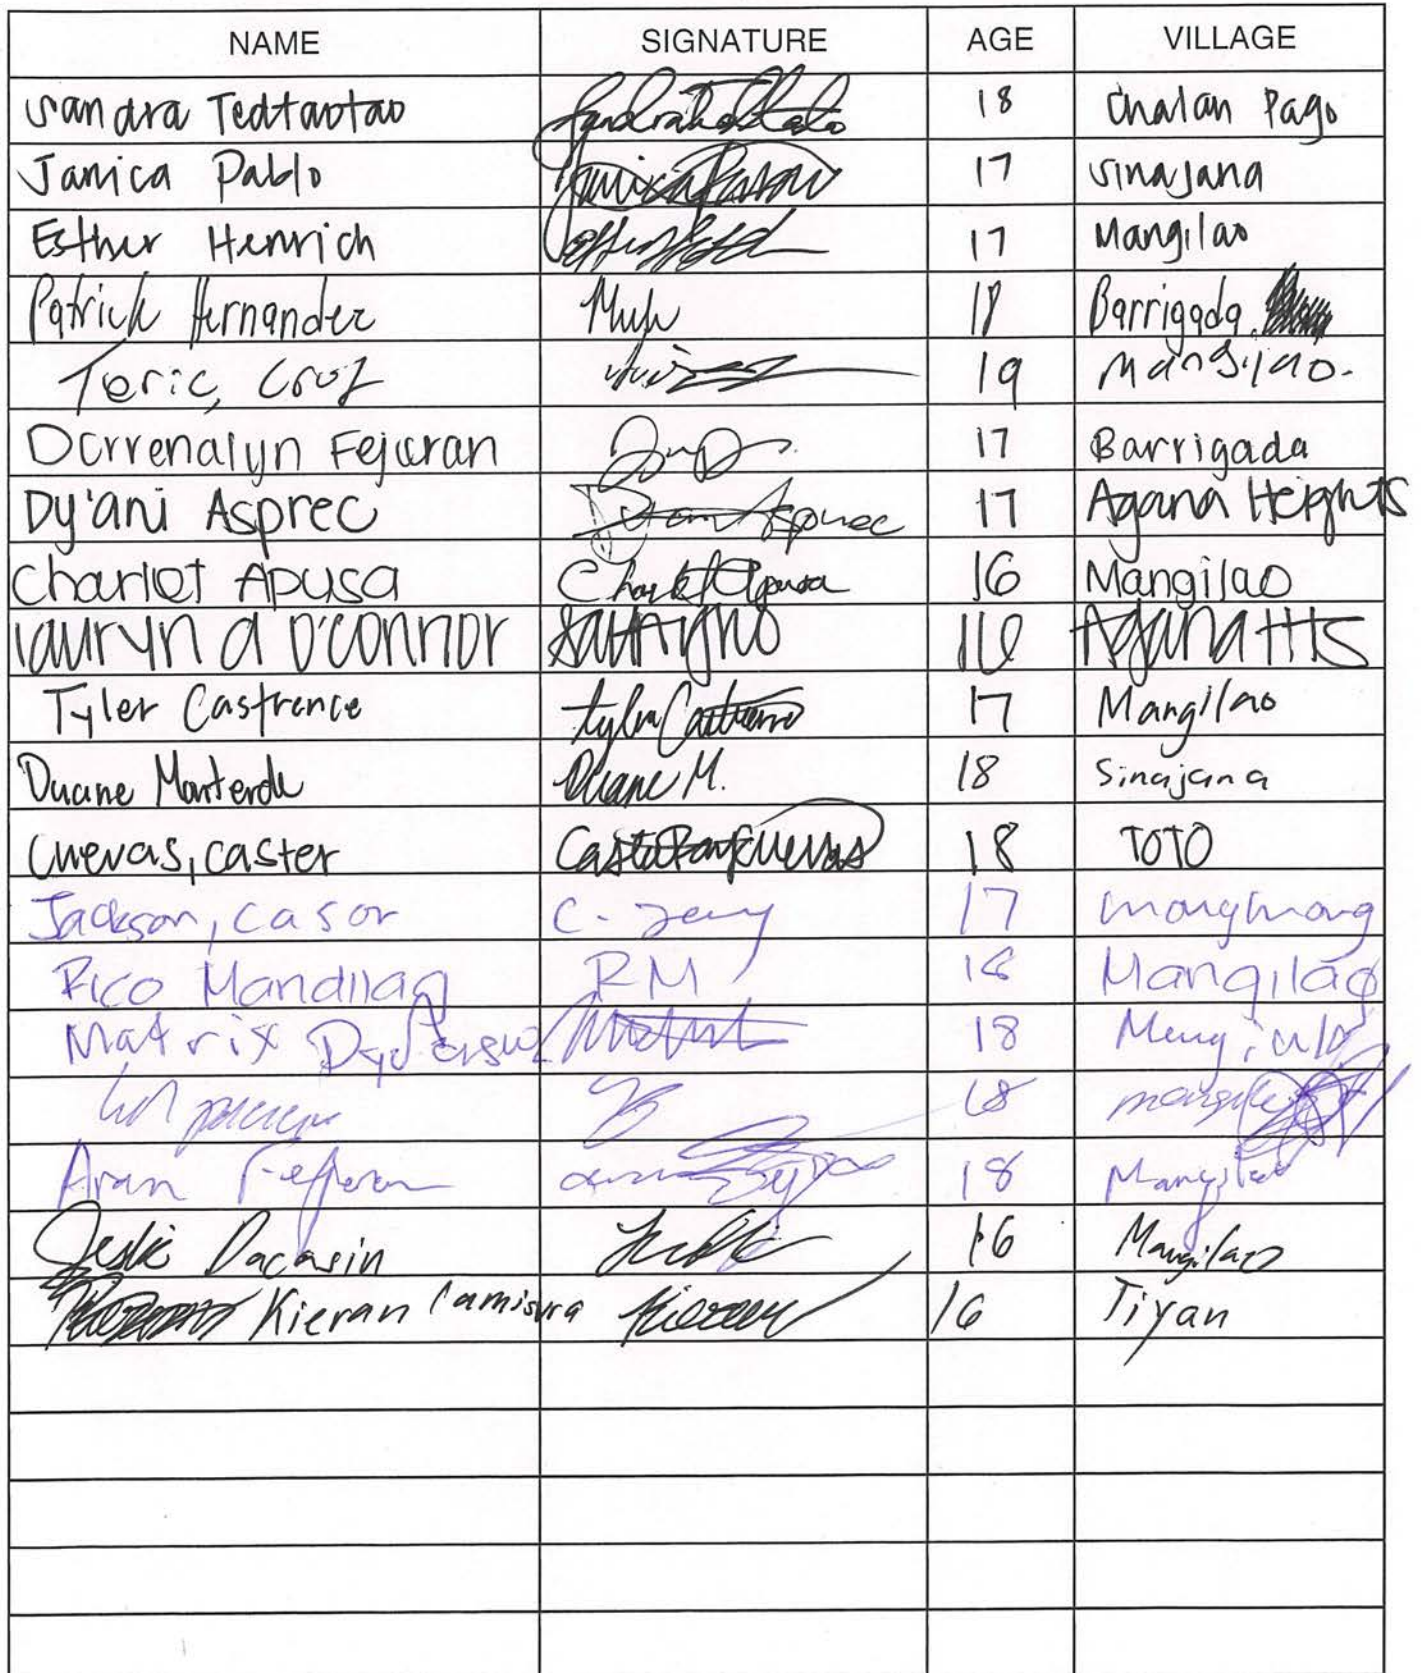 NAME SIGNATURE AGE VILLAGE
Sandra Tedtaotao 18 Chalan Pago
Janica Pablo 17 Sinajana
Esther Henrich 17 Mangilao
Patrick Hernandez 18 Barrigada
Teric, Cruz 19 Mangilao.
Darrenalyn Fejaran 17 Barrigada
Dy'ani Asprec 17 Agana Heights
Charlet Apusa Charlet Apusa 16 Mangilao
lauryn a o'connor 16 Agana Hts
Tyler Castrence Tyler 17 Mangilao
Duane Manterde Duane M. 18 Sinajana
Cuevas, caster Cuevas 18 TOTO
Jackson, casor C. 17 mongmong
Rico Mandilag RM 18 Mangilao
Matrix 18
18
Aran 18 Mangilao
Leslie Dacasin 16 Mangilao
Kieran Camisura Kieran 16 Tiyan